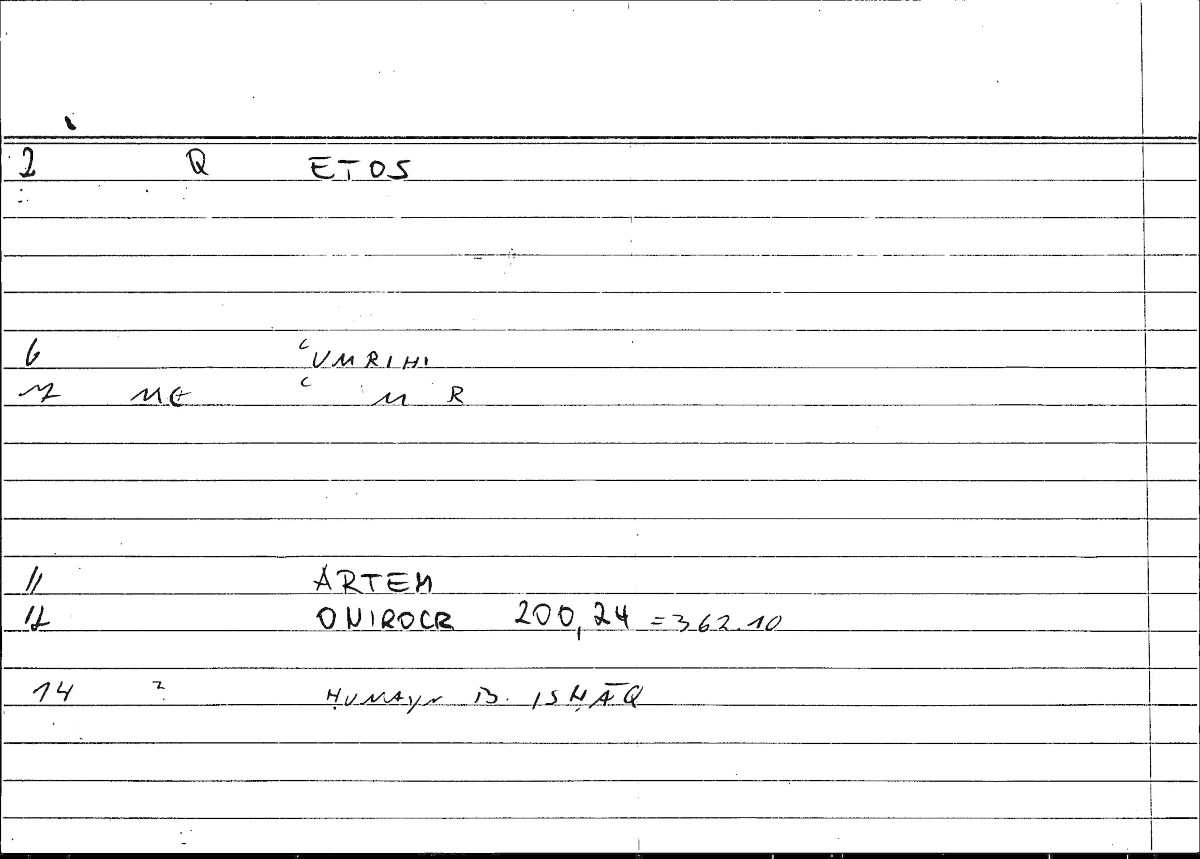 2 Q ETOS
6 ʿUMRIHI
7 ME ʿ M R
11 ARTEM
12 ONIROCR 200,24 =362.10
14 2 ḤUNAYN B. ISḤĀQ